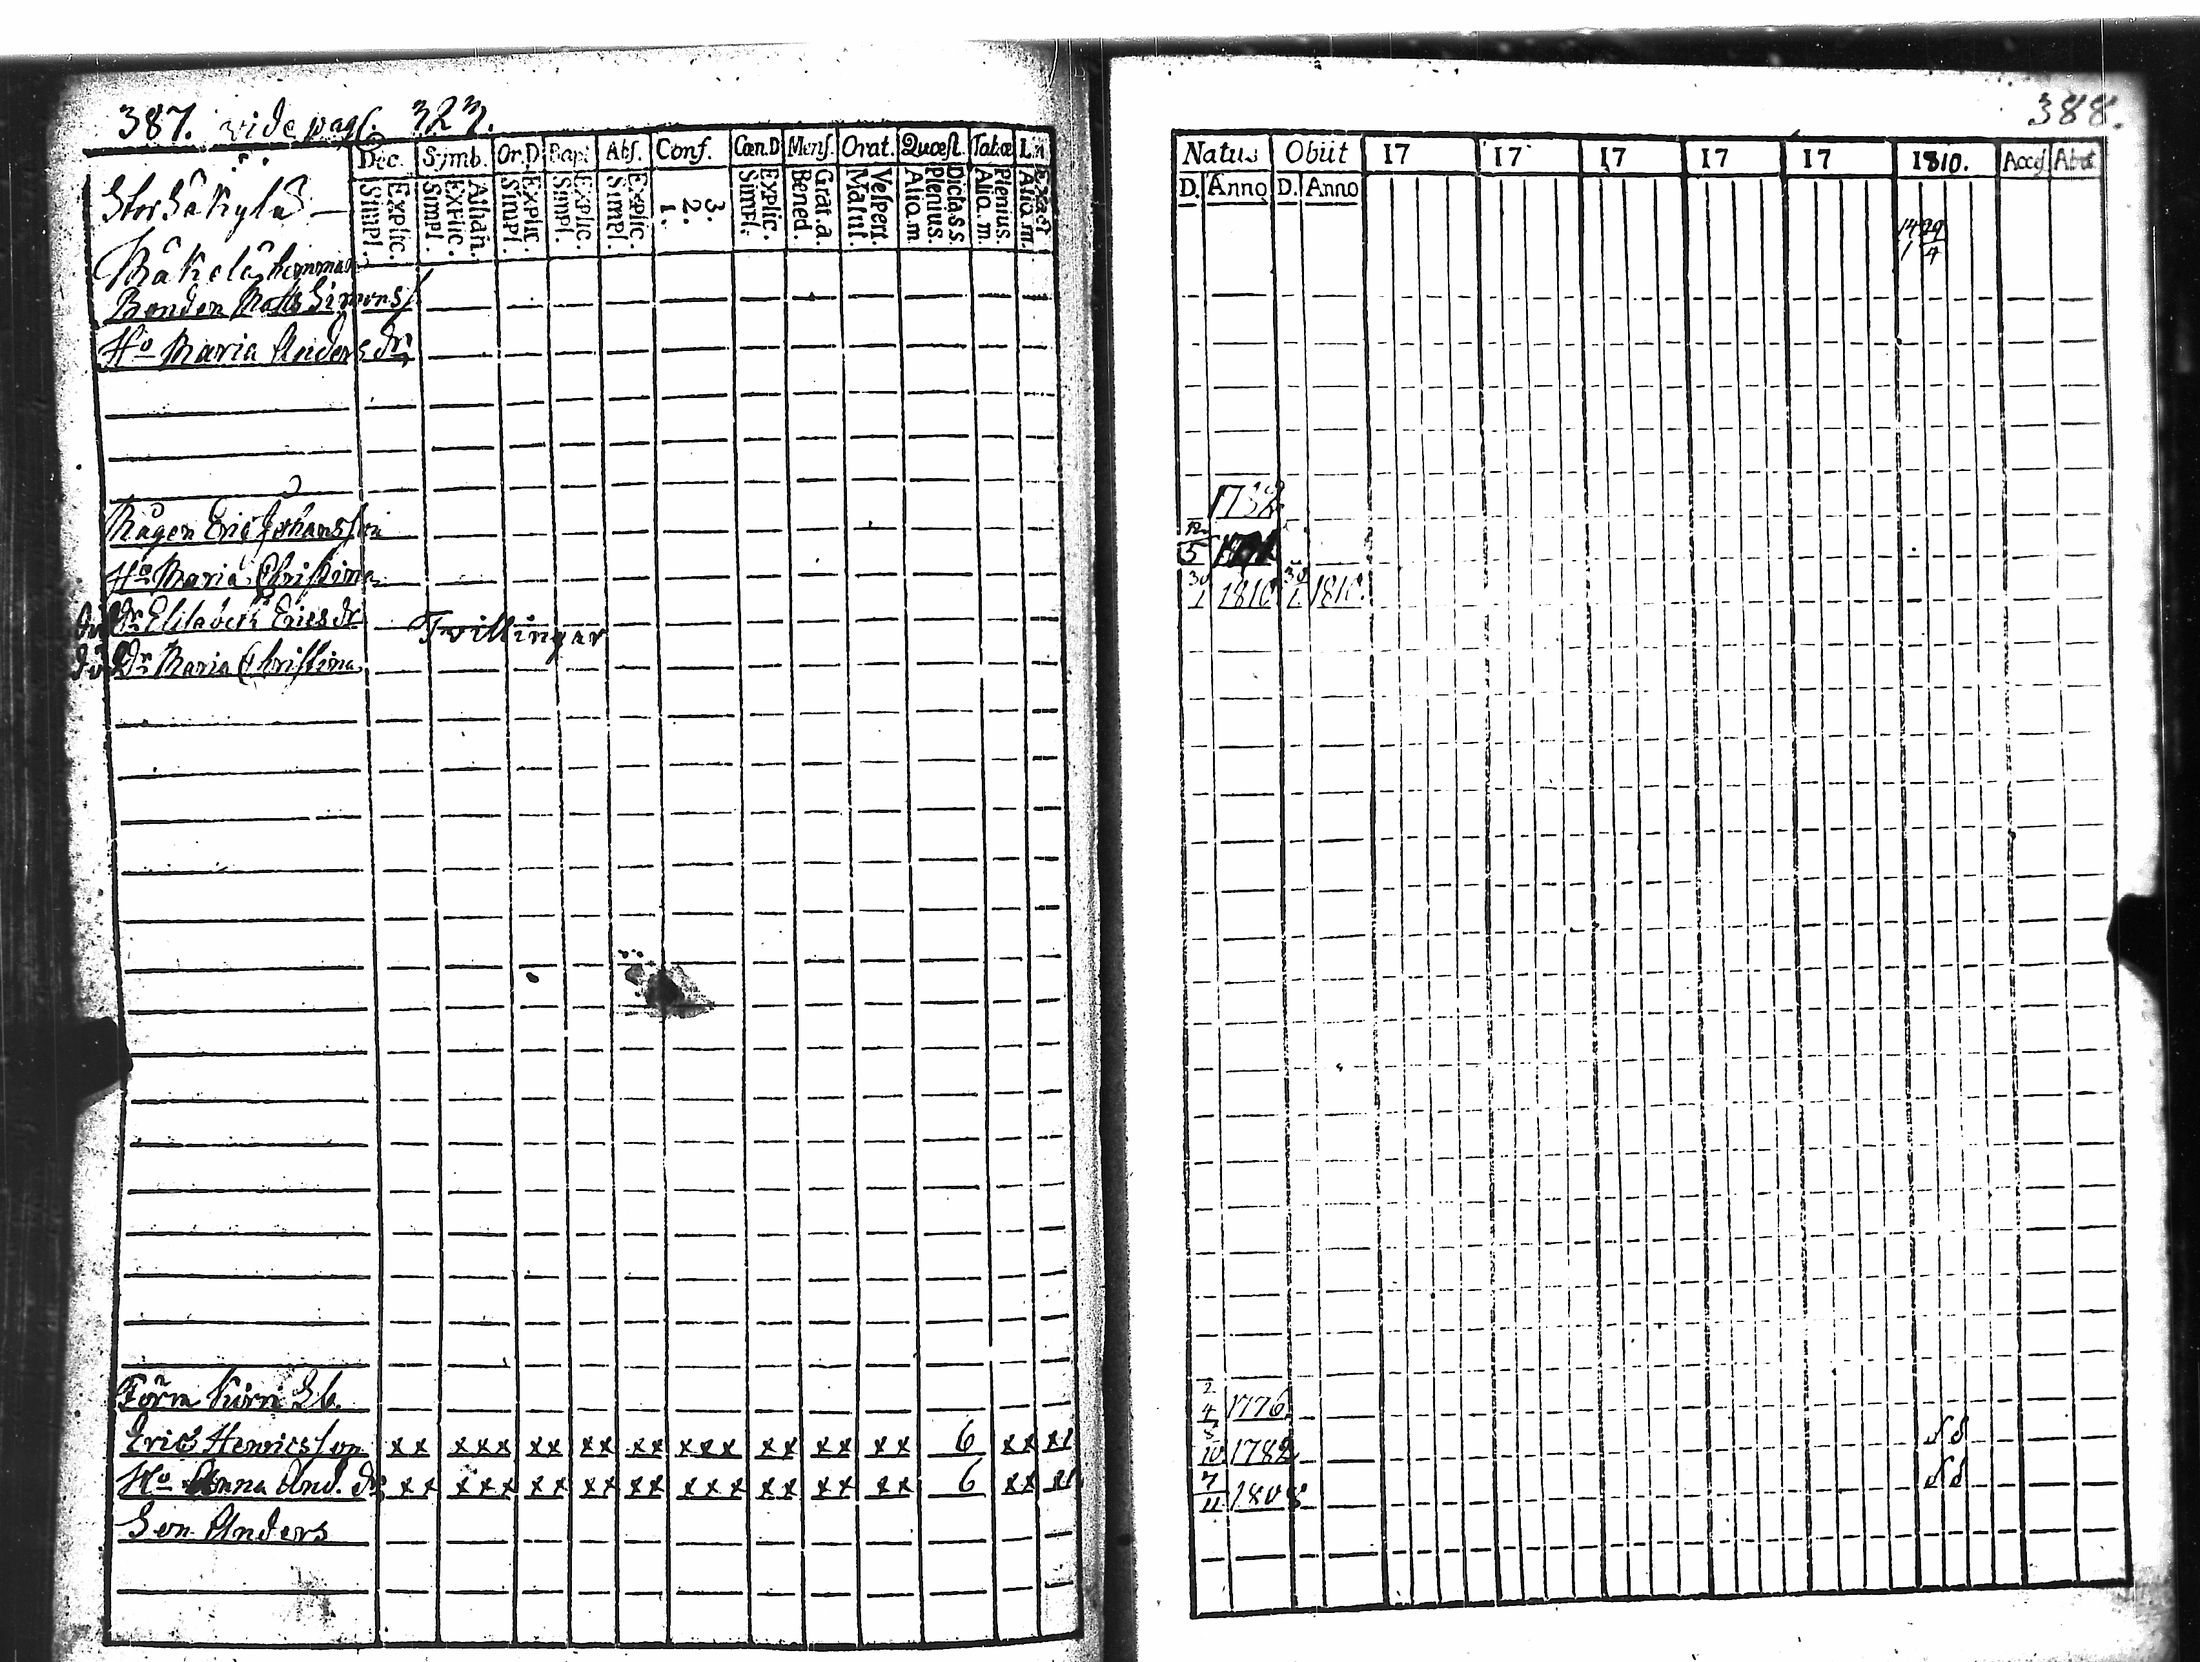 387. vide pag. 323.
Dec. Symb. Or.D Bapt Abs. Conf. Cœn.D Mens. Orat. Quæst. Tabæ L.n
Simpl. Explic. Simpl. Explic. Athan. Simpl. Explic. Simpl. Explic. Simpl. Explic. 1. 2. 3. Simpl. Explic. Bened. Grat.a. Matut. Vespert. Alia.m Plenius. Dicta.s.s. Alia.m. Plenius. Alia.m. Exact
Stor Säkylä
Mäkelä hemman
Bonden Matts Simonss
Ho Maria Anders dr
Mågen Eric Johansson
Ho Maria Christina
död Dr Elisabeth Erics dr
Tvillingar
död Dr Maria Christina
Torp Sb.
Eric Henricsson xx xxx xx xx xx xxx xx xx xx 6 xx xx
Ho Anna And. dr xx xxx xx xx xx xxx xx xx xx 6 xx xx
Son Anders
388.
Natus Obiit 17 17 17 17 17 1810. Access Abiit
D. Anno D. Anno
14/1 29/4
1732
5
30/1 1810 30/1 1810.
2/4 1776
8/10 1782
7/11 1808